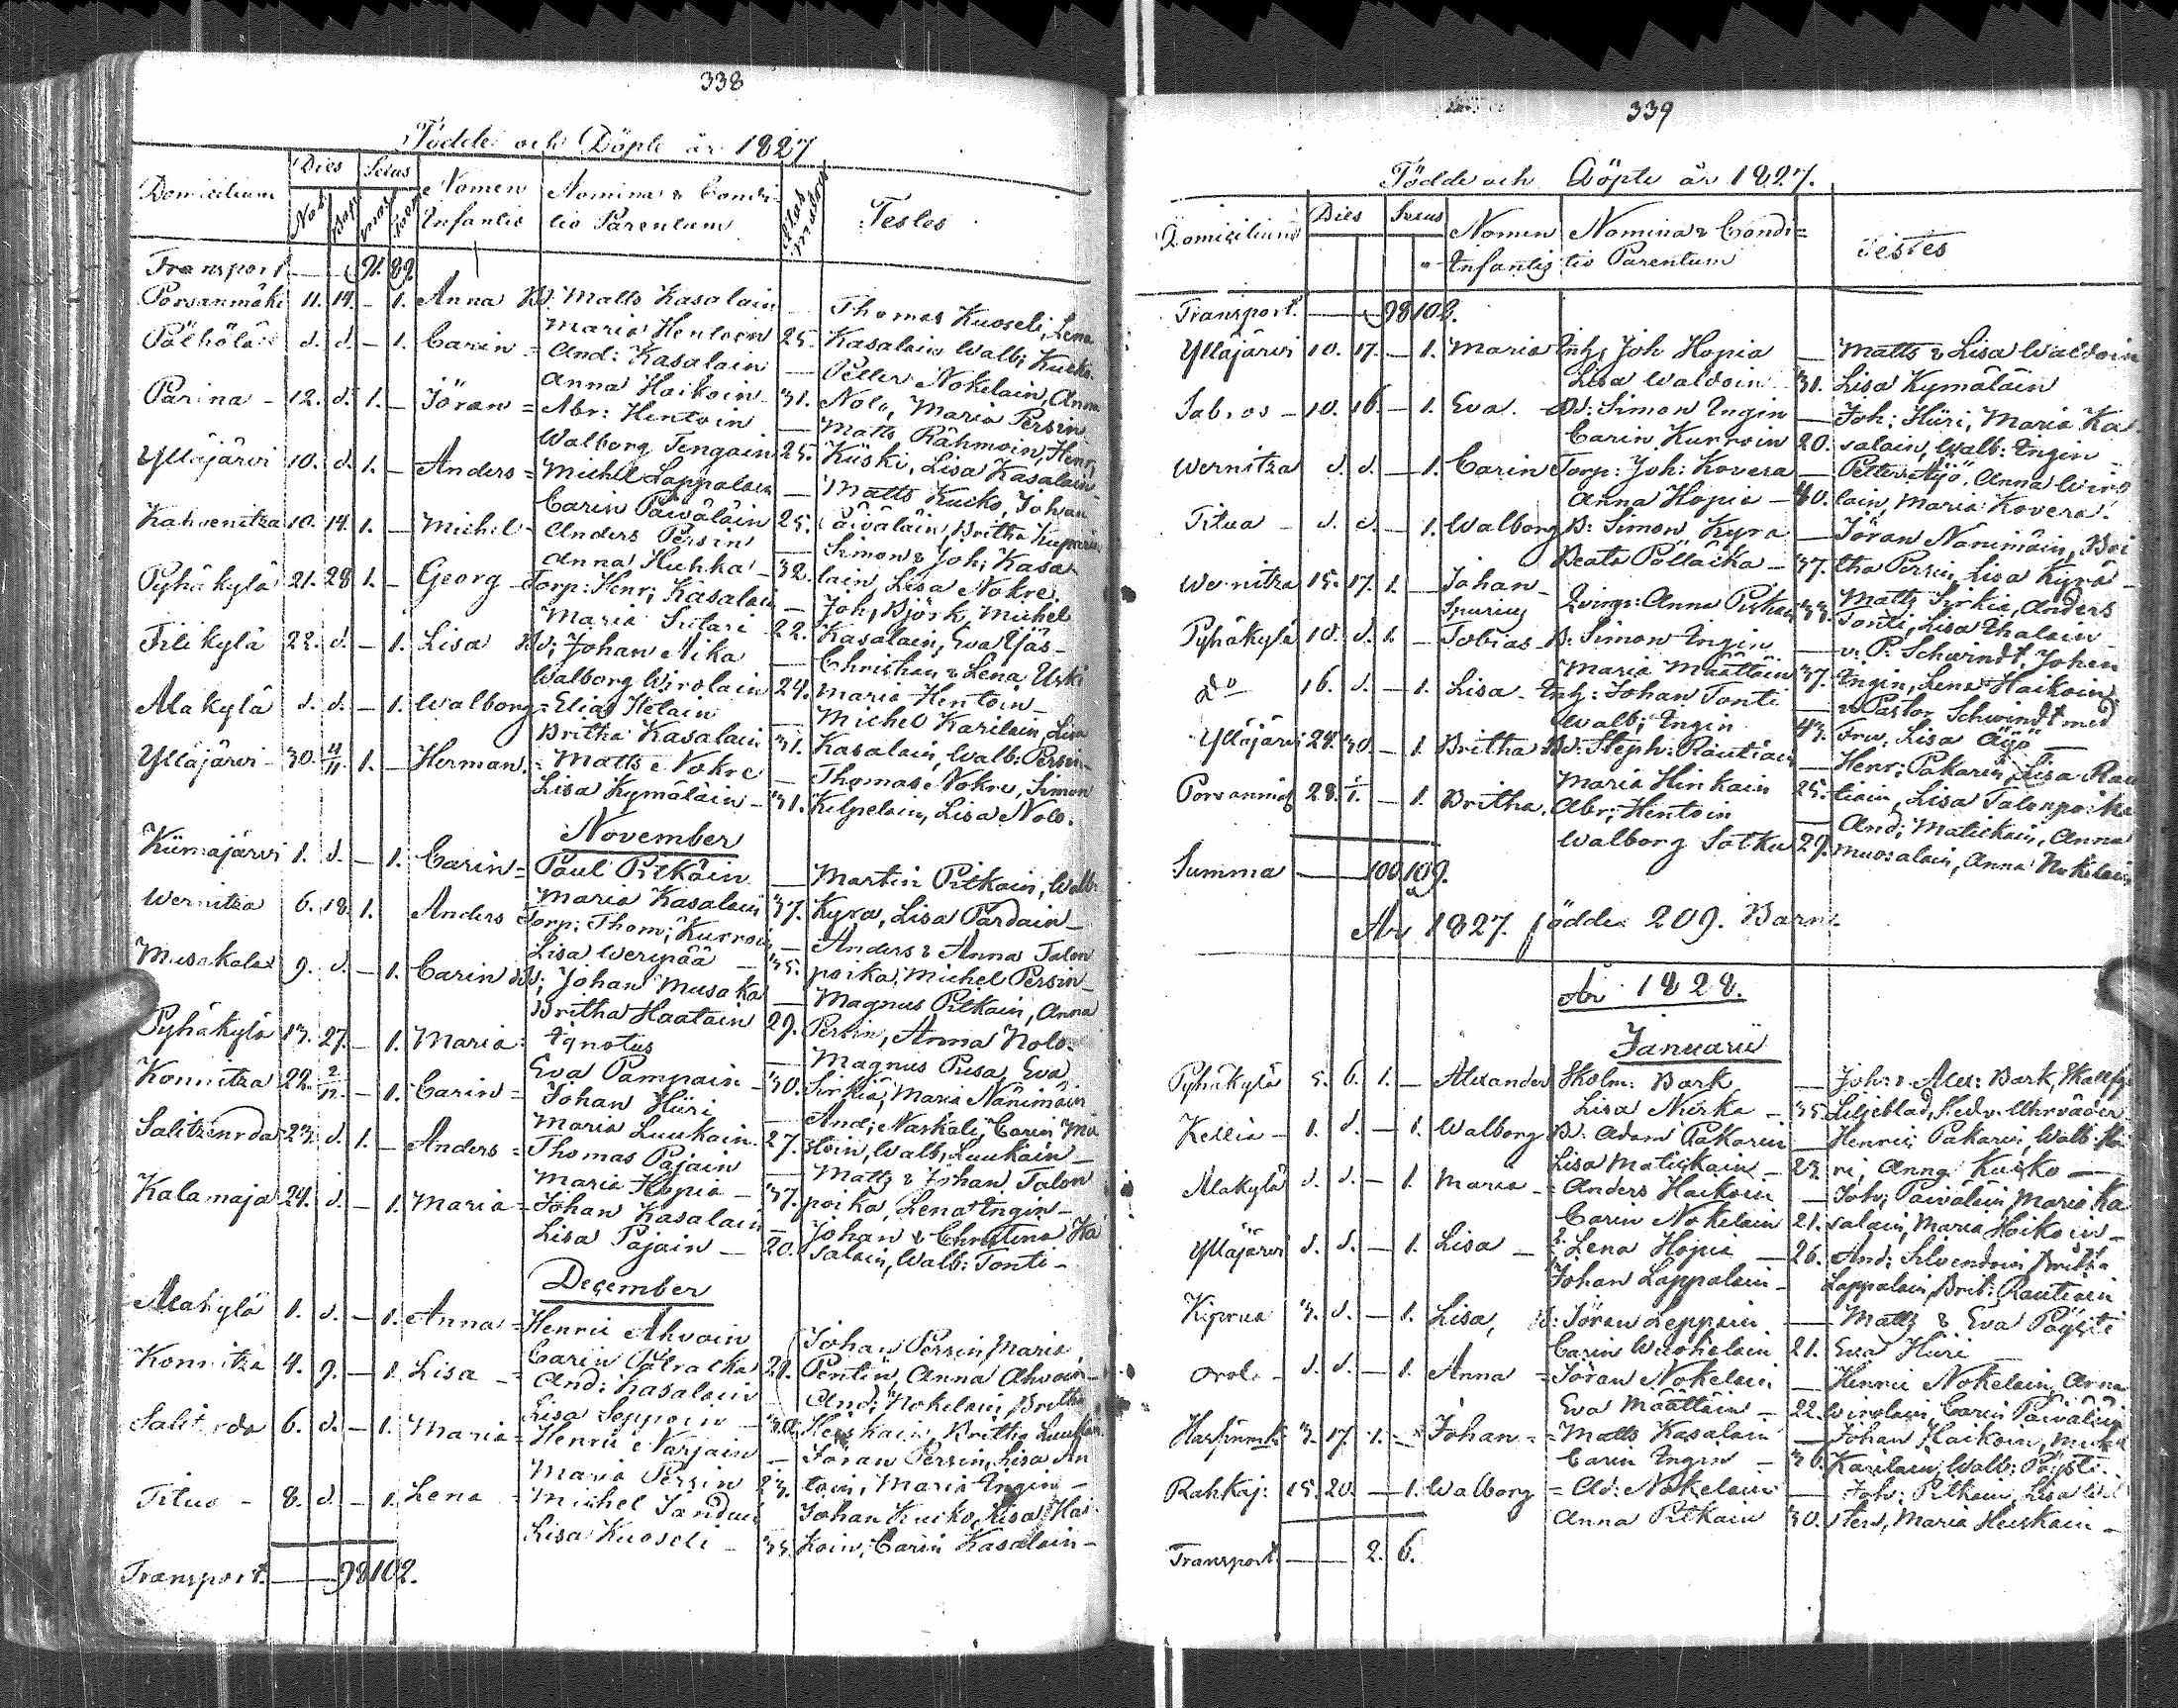 338
Födde och Döpte år 1827
Domicilium Dies Sexus Nomen Infantis Nomina & Conditio Parentum Testes
Transport — — 91. 89
Porsanmäki 11. 14. — 1. Anna B: Matts Kasalain — Thomas Kuoseli, Lena
Maria Hentoin 25. Kasalain Walb; Kucko
Pölhölä d. d. — 1. Carin = And: Kasalain — Petter Nokelain, Anna
Anna Haikoin 31. Nolo, Maria Persin
Parina — 12. d. 1. — Jöran = Abr: Hentoin — Matts Rähmoin, Henr;
Walborg Tengain 25. Kiiski, Lisa Kasalain
Ylläjärvi 10. d. 1. — Anders = Michel Lappalain — Matts Kucko, Johan
Carin Päiväläin 25. Päiväläin, Britha Kuparin
Kahvenitza 10. 14. 1. — Michel = Anders Persin — Simon & Joh; Kasa-
Anna Huhka — 32. lain, Lisa Nokre
Pyhäkylä 21. 28 1. — Georg Torp: Henr; Kasalain — Joh; Björk, Michel
Maria Sutari 22. Kasalain, Eva Äjäs-
Filikylä 22. d. — 1. Lisa B; Johan Aika — Christian & Lena Uski
Walborg Wirolain 24. Maria Hentoin —
Alakylä d. d. — 1. Walborg = Elias Helain — Michel Karilain, Lisa
Britha Kasalain 31. Kasalain, Walb: Persin
Ylläjärvi — 30. 4/11 1. — Herman = Matts Nokre — Thomas Nokre, Simon
Lisa Kymäläin — 31. Kilpelain, Lisa Nolo.
November
Kiimajärvi 1. d. — 1. Carin = Paul Pitkäin — Martin Pitkain, Walb:
Maria Kasalain 37. Kyra, Lisa Pardain —
Wernitza 6. 18 1. Anders Torp; Thom; Kurroin — Anders & Anna Talon
Lisa Weripää — 35. poika, Michel Persin —
Musakala 9. d. — 1. Carin B; Johan Musaka — Magnus Pitkain, Anna
Britha Haatain 29. Persin, Anna Nolo.
Pyhäkylä 13. 27. — 1. Maria = Ignotus — Magnus Pusa, Eva
Eva Pampain — 30. Sirkiä, Maria Nänimäin
Konnitza 22. 2/12 — 1. Carin = Johan Hiiri — And; Naskali, Carin Mu
Maria Luukain 27. stoin, Walb; Luukain —
Salitzenrda 23. d. 1. — Anders = Thomas Pajain — Matts & Johan Talon
Maria Hopia — 37. poika, Lena Ingin —
Kalamaja 24. d. — 1. Maria = Johan Kasalain — Johan & Christina Ka
Lisa Pajain — 20. salain, Walb: Tonti —
December
Alakylä 1. d. — 1. Anna = Henric Ahvoin Johan Persin, Maria
Carin 21. Pentin, Anna Ahvoin —
Konnitza 4. 9. — 1. Lisa — = And: Kasalain And; Nokelain, Britha
Lisa Seppoin — 30. Heiskain, Britha Luukain
6. d. — 1. Maria = Henric Narjain — Jöran Persin, Lisa An
Maria Persin 23. toin, Maria Ingin —
Titua — 8. d. — 1. Lena = Michel Johan Kucko, Lisa Hai
Lisa Kuoseli — 33. koin, Carin Kasalain —
Transport. — — 98 102.
339
Födde och Döpte år 1827.
Domicilium Dies Sexus Nomen Infantis Nomina & Conditio Parentum Testes
Transport. — — 98 102.
Ylläjärvi 10. 17. — 1. Maria Inh; Joh Hopia — Matts & Lisa Waldoin
Lisa Waldoin 31. Lisa Kymäläin
Sabros — 10. 16. — 1. Eva. B: Simon Ingin — Joh: Hiiri, Maria Ka
Carin Kurroin 20. salain, Walb: Ingin —
Wernitza d. d. — 1. Carin Torp: Joh: Kovera — Petter Äijö, Anna Wiro
Anna Hopia — 40. lain, Maria Kovera.
Titua — d. d. — 1. Walborg B: Simon Kyra — Jöran Nänimäin, Bri
Beata Pölläkä — 37. tha Persin, Lisa Kyrä —
Wernitza 15. 17. 1. — Johan — Matts Sirkiä, Anders
Spurius Qvinsp: Anna Pitkain 33. Tonti, Lisa Ihalain
Pyhäkylä 10. d. 1. — Tobias B: Simon Ingin — v. P. Schwindt, Johan
Maria Määttäin 37. Ingin, Lena Haikoin
do 16. d. — 1. Lisa — Inh: Johan Tonti — v. Pastor Schwindt med
Walb; Ingin 43. Fru, Lisa Äijö —
Ylläjärvi 24. 30. — 1. Britha B: Steph: Rautiain — Henr; Pakarin, Lisa Rau
Maria Hinkain 25. tiain, Lisa Talonpoika
Porsanmäk 28. 1/1. — 1. Britha. Abr; Hentoin — And; Matickain, Anna
Walborg Sotku 29. Muosalain, Anna Nokelain
Summa — — 100. 109.
År 1827. födde 209. Barn.
År 1828.
Januarii
Pyhäkylä 5. 6. 1. — Alexander Skolm: Bark — Joh: & Alex: Bark,
Lisa Niska — 35. Liljeblad,
Kellia — 1. d. — 1. Walborg B: Adam Pakarin — Henric Pakarin, Walb: Hii
Lisa Matickain — 23. ri, Anna Kucko —
Alakylä d. d. — 1. Maria — = Anders Haikoin — Joh; Päiväläin, Maria Ka
Carin Nokelain 21. salain, Maria Haikoin —
Ylläjärvi d. d. — 1. Lisa — Lena Hopia — 26. And: Silvendoin, Britha
Johan Lappalain — Lappalain, Brit: Rautiain
Kiprua 3. d. — 1. Lisa, B: Jöran Leppäin — Matts & Eva Päysti
Carin Waskelain 21. Eva Hiiri —
Orola — d. d. — 1. Anna = Jöran Nokelain — Henric Nokelain, Anna
Eva Määttäin — 22. Wirolain, Carin Päiväläin
3. 17. 1. — Johan = Matts Kasalain — Johan Haikoin, Michel
Carin Ingin — 36. Karilain, Walb: Päysti.
Rahkaj: 15. 20. — 1. Walborg = Ad: Nokelain — Joh: Pitkain, Lisa
Anna Pitkain 30. Maria Heiskain —
Transport — — 2. 6.